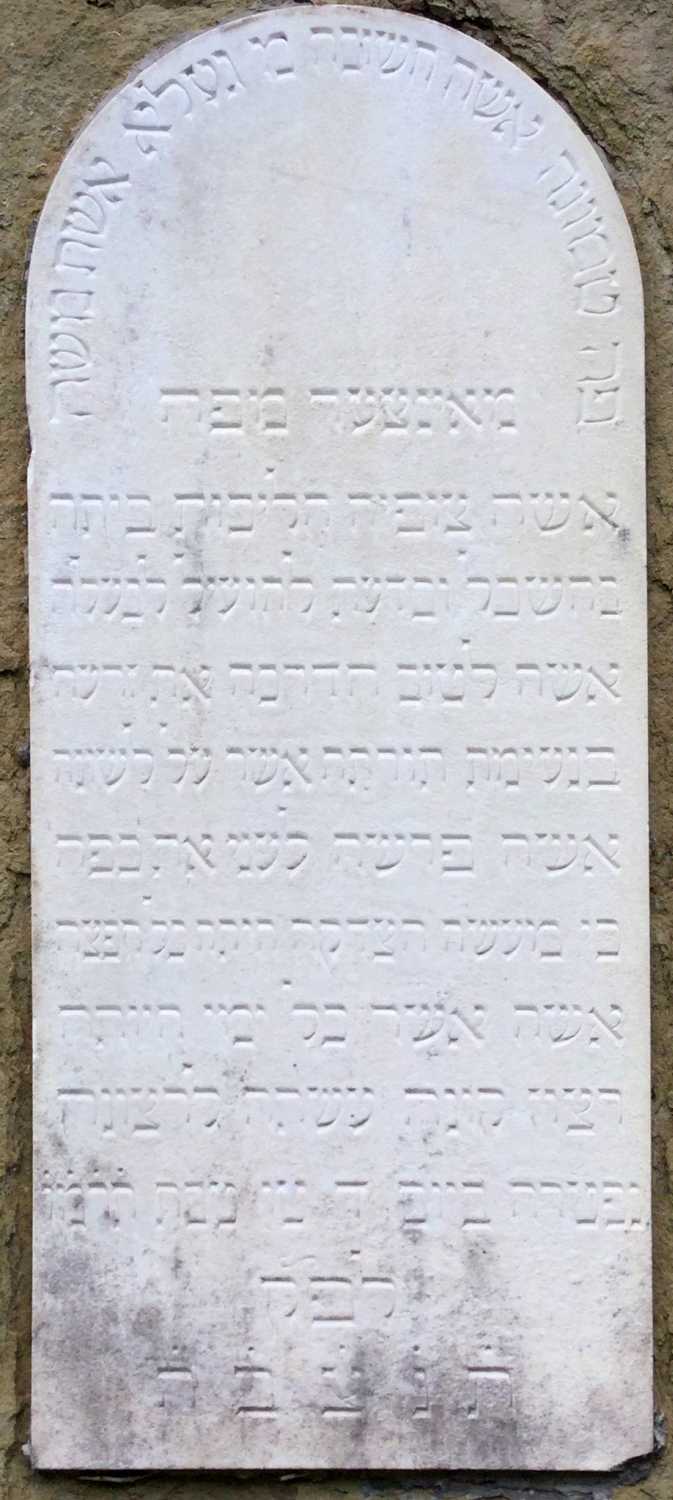 פה טמונה אשה חשובה מ געלא אשת משה
מאינצער מפה
אשה צופיה הליכות ביתה
בהשכל ובדעת להועיל לבעלה
אשה לטוב הדריכה את זרעה
בנעימת תורתה אשר על לשונה
אשה פרשה לעני את כפה
כי מעשה הצדקה היתה כל חפצה
אשה אשר כל ימי חייתה
רצון קונה עשתה כרצונה
נפטרה ביום ד טו טבת תרמו
לפק
תנצבה